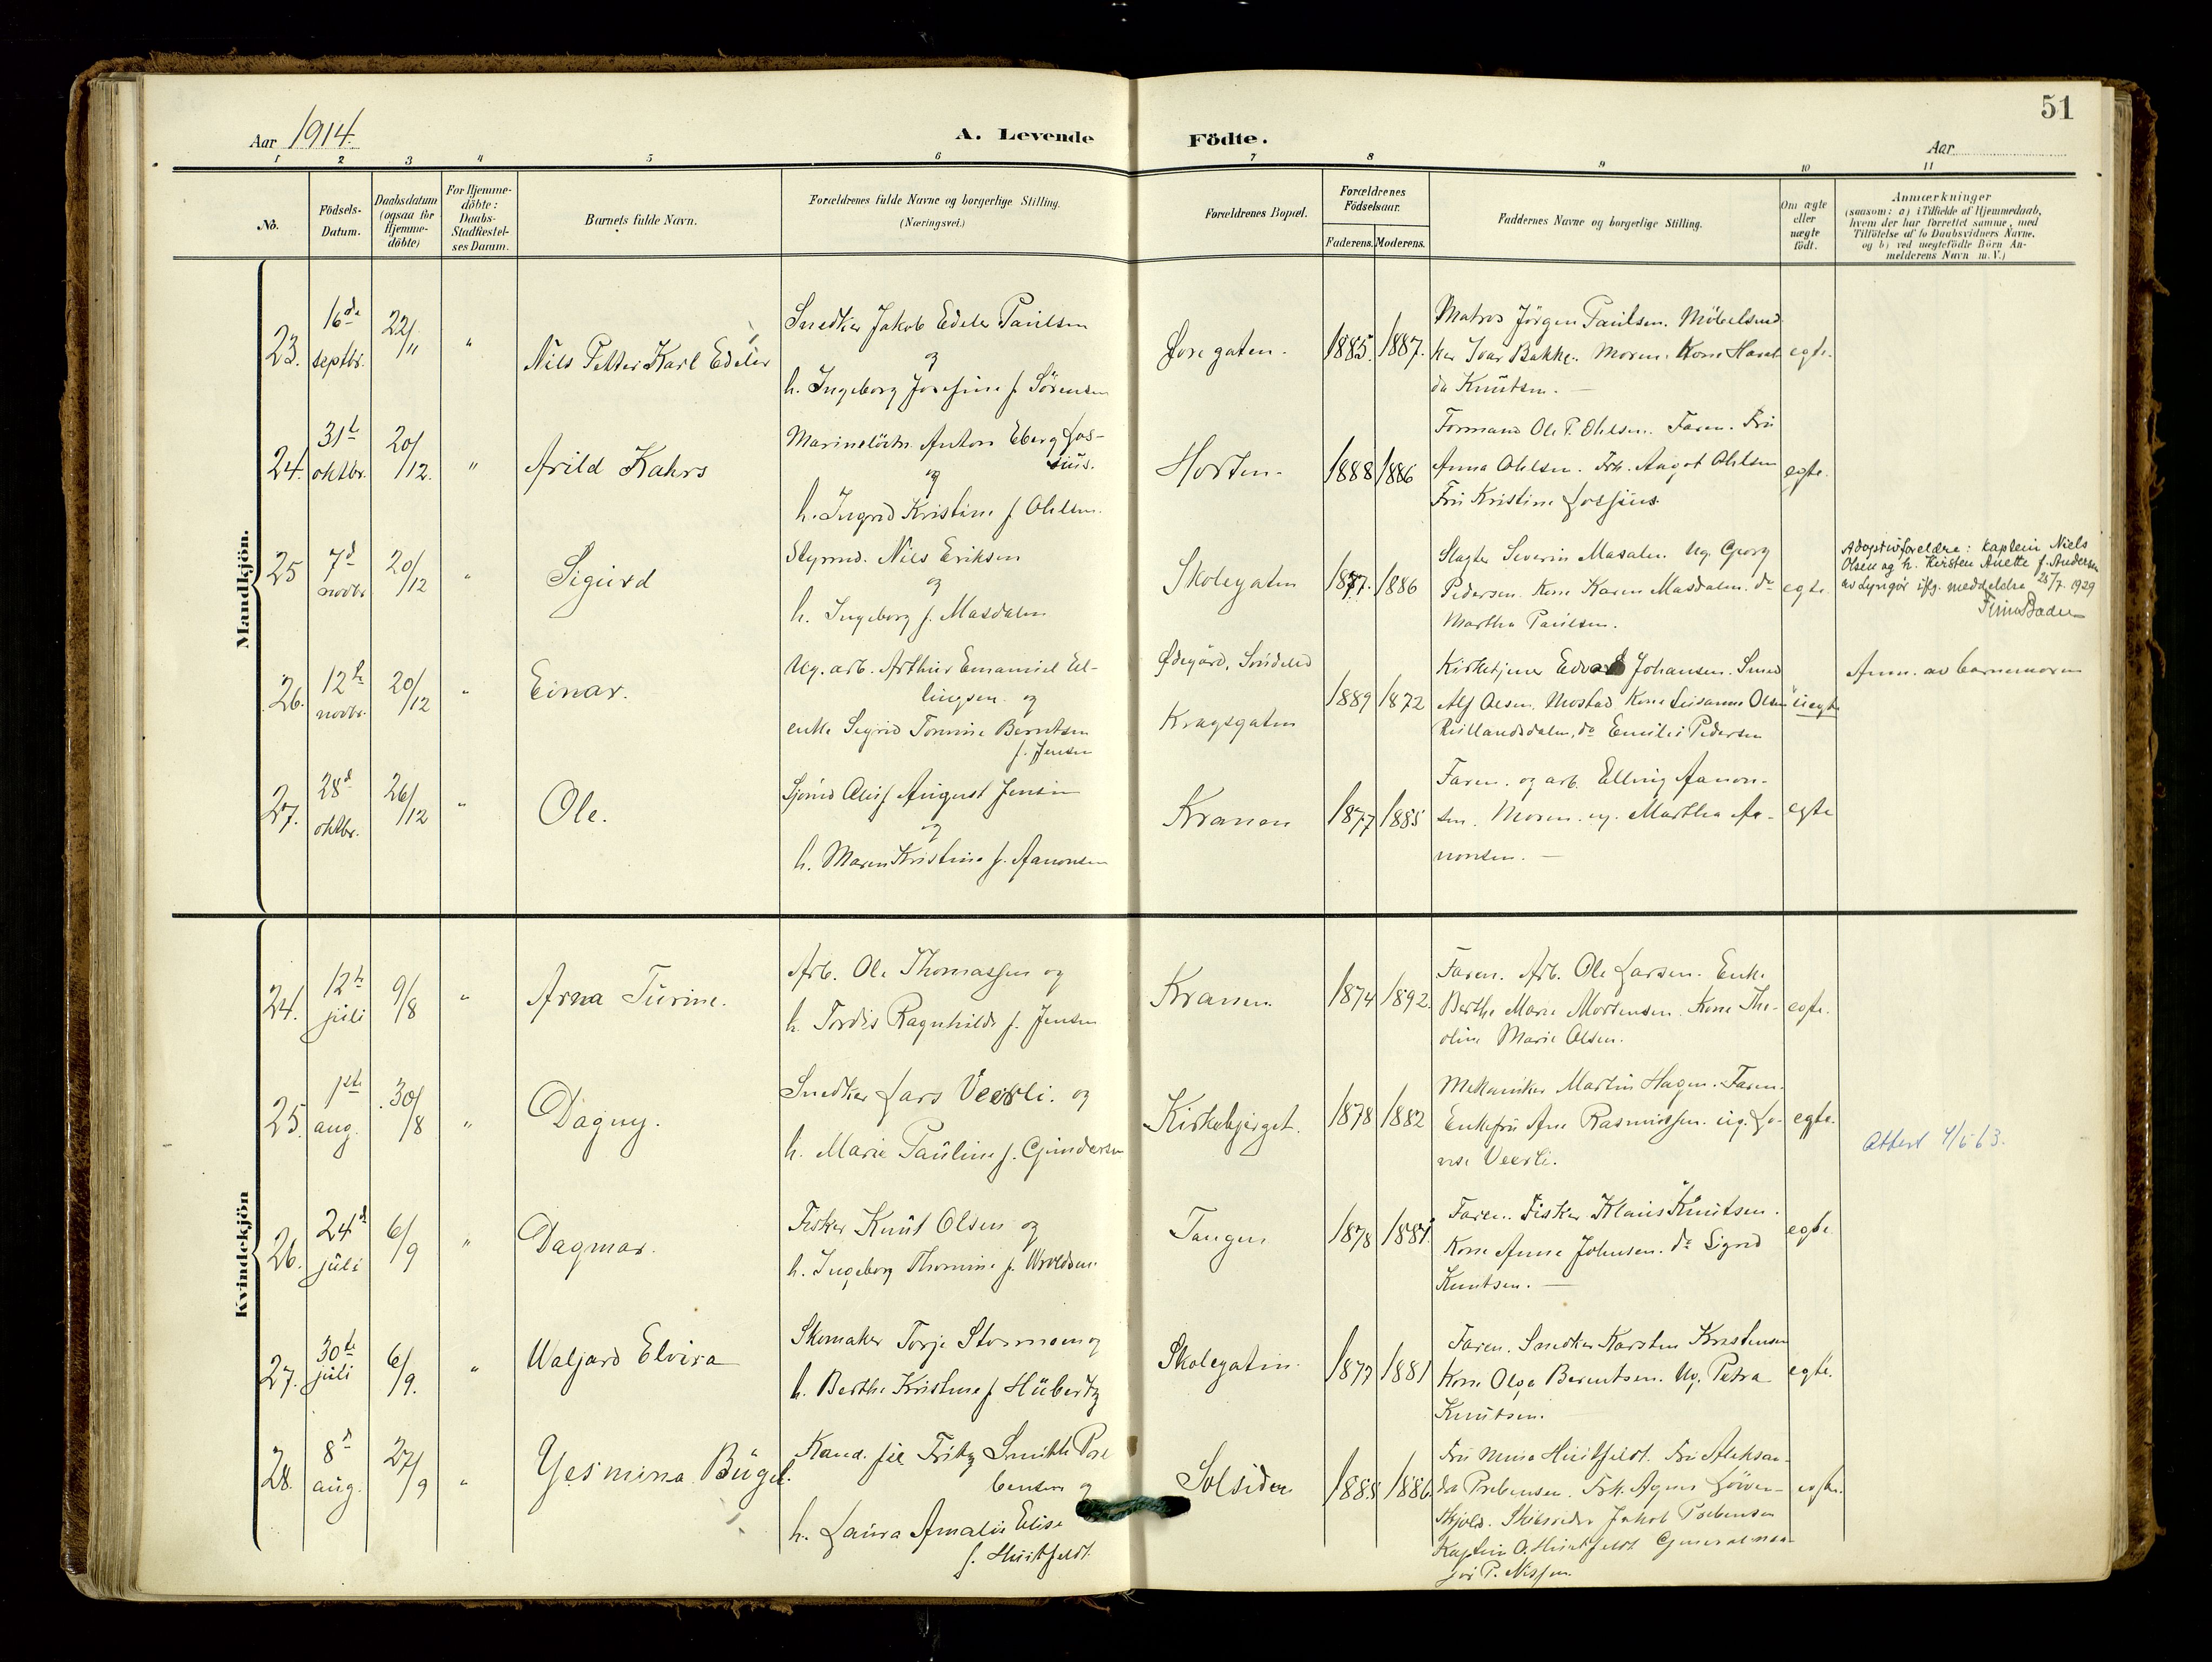 51
Aar 1914.
A. Levende Födte.
Aar
1 2 3 4 5 6 7 8 9 10 11
No.
Födsels-
Datum.
Daabsdatum
(ogsaa for
Hjemme-
döbte)
For Hjemme-
döbte:
Daabs-
Stadfæstel-
ses Datum.
Barnets fulde Navn.
Forældrenes fulde Navne og borgerlige Stilling.
(Næringsvei.)
Forældrenes Bopæl.
Forældrenes
Födselsaar.
Faderens. Moderens.
Faddernes Navne og borgerlige Stilling.
Om ægte
eller
uægte
födt.
Anmærkninger
(saasom: a) i Tilfælde af Hjemmedaab,
hvem der har forrettet samme, med
Tilföielse af to Daabsvidners Navne.
og b) ved uægtefödte Börn An-
melderens Navn m. V.)
Mandkjön.
23. 16de septbr. 22/11 " Nils Petter Karl Edeler
Snedker Jakob Edeler Paulsen
og
h. Ingeborg Josefine f. Sörensen
1885. 1887.
Matros Jörgen Paulsen. Möbelsned
ker Ivar Bakke. Moren. Kone Haral
da Knutsen. —
egte.
24. 31te oktbr. 20/12. " Arild Kahrs
Anton Eberg Los-
sius.
og
h. Ingrid Kristine f. Ohlsen.
Horten.
1888 1886
Formand Ole P. Ohlsen. Faren. Fru
Anna Ohlsen. Frk. Aagot Ohlsen
Fru Kristine Lossius.
egte.
25 7d novbr 20/12 " Sigurd
Styrmd. Nils Eriksen
og
h. Ingeborg f. Masdalen
Skolegaten
1877. 1886
Slagter Severin Masalen. Ug. Georg
Pedersen. Kone Karen Masdalen. do
Martha Paulsen.
egte.
Adoptivforeldre: kaptein Niels
Olsen og h. Kirsten Anette f. Andersen
av Lyngör iflg. meddelelse 25/7. 1929
26. 12te novbr. 20/12 " Einar.
Ug. arb. Arthur Emanuel El-
lingsen. og
enke Sigrid Tomine Berntsen
f. Jensen
Ødegård, Söndeled
Kragsgaten
1889 1872
Kirketjener Edvard Johansen. Smed
Alf Olsen, Mostad Kone Susanne Olsen
do Emilie Pedersen
uegte
Anm. av barnemoren
27. 28d oktbr. 26/12 " Ole.
Sjömd Oluf August Jensen
og
h. Maren Kristine f. Aanonsen
Kranen
1877 1885
Faren. og arb. Elling Aanon-
sen. Moren. ug. Martha Aa-
nonsen. —
egte
Kvindekjön
24. 12te juli 9/8 " Arna Turine.
Arb. Ole Thomassen og
h. Tordis Ragnhilde f. Jensen
Kranen.
1874 1892.
Faren. Arb. Ole Larsen. Enke
Berthe Marie Mortensen. Kone The-
oline Marie Olsen.
egte.
25. 1ste aug. 30/8 " Dagny.
Snedker Lars Veerli. og
h. Marie Pauline f. Gundersen
Kirkebjerget.
1878 1882
Mekaniker Martin Hagen. Faren.
Enkefru Ane Rasmussen. ug. Lo-
vise Veerli.
egte.
Attest 4/6 63.
26. 24d juli 6/9 " Dagmar.
Fisker Knut Olsen og
h. Ingeborg Thomine f. Wroldsen.
Tangen
1878 1881
Faren. Fisker Klaus Knutsen.
Kone Anne Johnsen. do Sigrid
Knutsen. —
egte.
27. 30te juli 6/9. " Waljard Elvira
Skomaker Torje Stormoen og
h. Berthe Kristine f. Hübertz
Skolegaten.
1877 1881
Faren. Snedker Karsten Kristensen
Kone Olga Berentsen. Ug. Petra
Knutsen.
egte.
28. 8d aug. 27/9 " Yesmina Bügel.
Kand. fil. Fritz Smith Pre
bensen og
h. Laura Amalie Elise
f. Huitfeldt.
Solsiden
1885 1886.
Fru Mina Huitfeldt. Fru Aleksan-
dra Prebensen. Frk. Agnes Löven-
skjold. Skibsreder Jakob Prebensen
Kaptein O. Huitfeldt Generalma-
jor P. Nissen
egte.